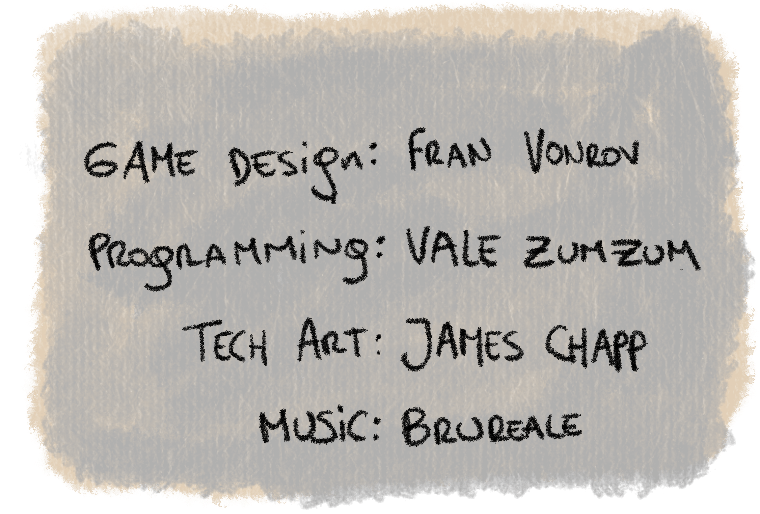 GAME DESign: FRAN VONROV
PROgRAMMiNg: VALE ZUMZUM
TECH ART: JAMES CHAPP
MUSiC: BRUREALE